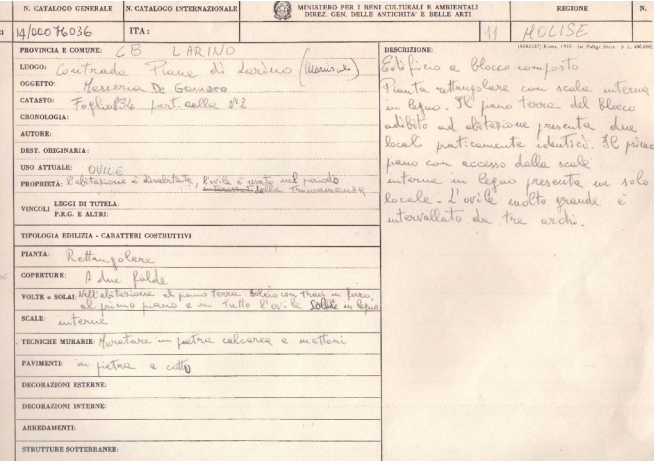 N. CATALOGO GENERALE
N. CATALOGO INTERNAZIONALE
MINISTERO PER I BENI CULTURALI E AMBIENTALI
DIREZ. GEN. DELLE ANTICHITA' E BELLE ARTI
REGIONE
N.
14/00076036
ITA:
11
MOLISE
PROVINCIA E COMUNE: CB LARINO
LUOGO: Contrada Piane di Larino
OGGETTO: Masseria De Gennaro
CATASTO: Foglio 34 particella N°2
CRONOLOGIA:
AUTORE:
DEST. ORIGINARIA:
USO ATTUALE: OVILE
PROPRIETÀ: l'abitazione è disabitata, l'ovile è usato nel periodo
della transumanza
VINCOLI
LEGGI DI TUTELA:
P.R.G. E ALTRI:
TIPOLOGIA EDILIZIA - CARATTERI COSTRUTTIVI
PIANTA: Rettangolare
COPERTURE: A due falde
VOLTE o SOLAI: Nell'abitazione al piano terra solaio con travi in ferro,
al primo piano e in tutto l'ovile solaio in legno
SCALE: interne
TECNICHE MURARIE: Murature in pietra calcarea e mattoni
PAVIMENTI: in pietra e cotto
DECORAZIONI ESTERNE:
DECORAZIONI INTERNE:
ARREDAMENTI:
STRUTTURE SOTTERRANEE:
DESCRIZIONE:
Edificio a blocco composto
Pianta rettangolare con scala interna
in legno. Il piano terra del blocco
adibito ad abitazione presenta due
locali praticamente identici. Il primo
piano con accesso dalla scala
interna in legno presenta un solo
locale. L'ovile molto grande è
intervallato da tre archi.